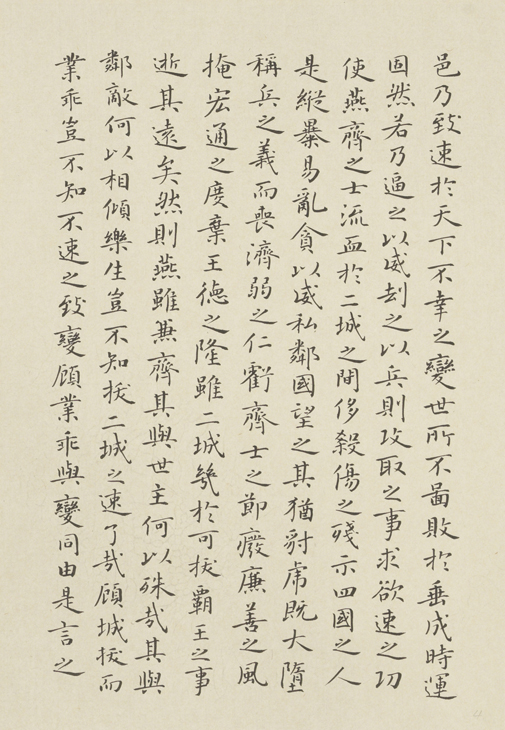 邑乃致速於天下不幸之變世所不啚敗於垂成時運
固然若乃逼之以威刦之以兵則攻取之事求欲速之功
使燕齊之士流血於二城之間侈殺傷之殘示四國之人
是縱暴易亂貪以成私鄰國望之其猶豺虎既大墮
稱兵之義而喪濟弱之仁虧齊士之節廢廉善之風
掩宏通之度棄王德之隆雖二城幾於可拔霸王之事
逝其遠矣然則燕雖兼齊其與世主何以殊哉其與
鄰敵何以相傾樂生豈不知拔二城之速了哉顧城拔而
業乖豈不知不速之致變顧業乖與變同由是言之